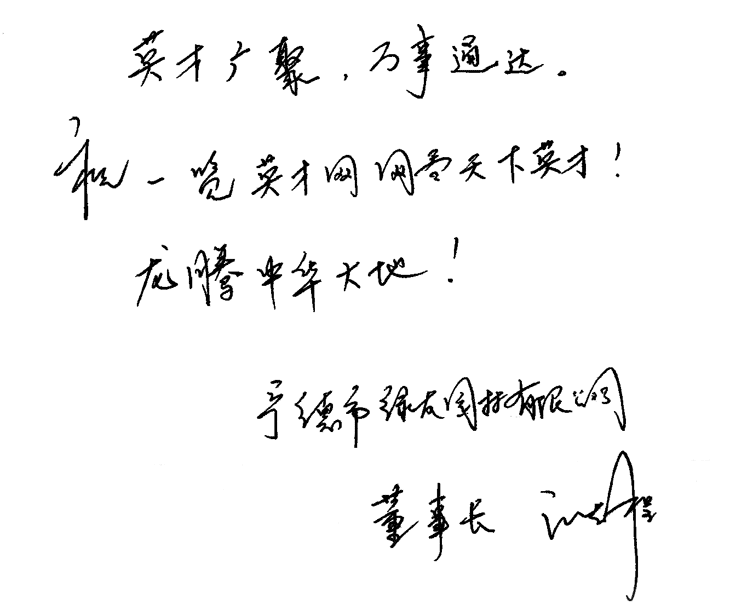 英才广聚，万事通达。
祝一览英才网网尽天下英才！
龙腾中华大地！
宁德市绿友园林有限公司
董事长